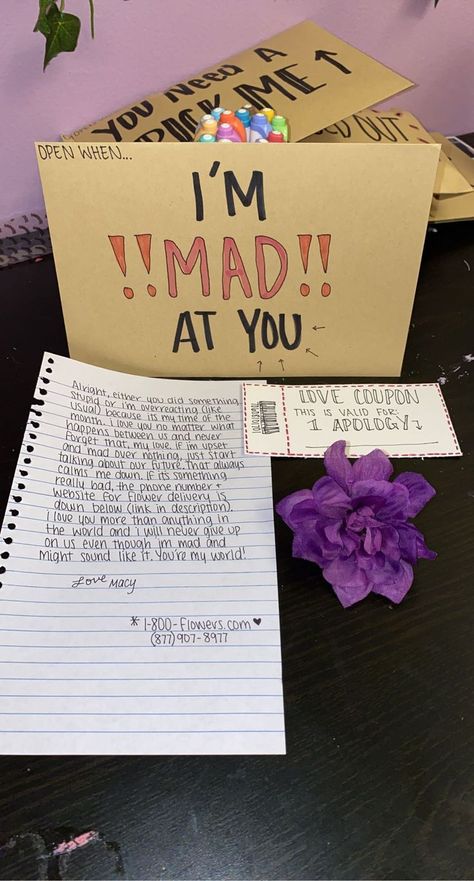 YOU NEED A
ME ↑
OUT
OPEN WHEN...
I'M
!!MAD!!
AT YOU
Alright, either you did something
stupid or i'm overreacting (like
usual) because its my time of the
month. I love you no matter what
happens between us and never
forget that, my love. If i'm upset
and mad over nothing, just start
talking about our future. That always
calms me down. If its something
really bad, the phone number +
website for flower delivery is
down below (link in description).
I love you more than anything in
the world and i will never give up
on us even though im mad and
might sound like it. You're my world!
Love Macy
* 1-800-Flowers.com ♥
(877) 907-8977
LOVE COUPON
THIS IS VALID FOR:
1 APOLOGY